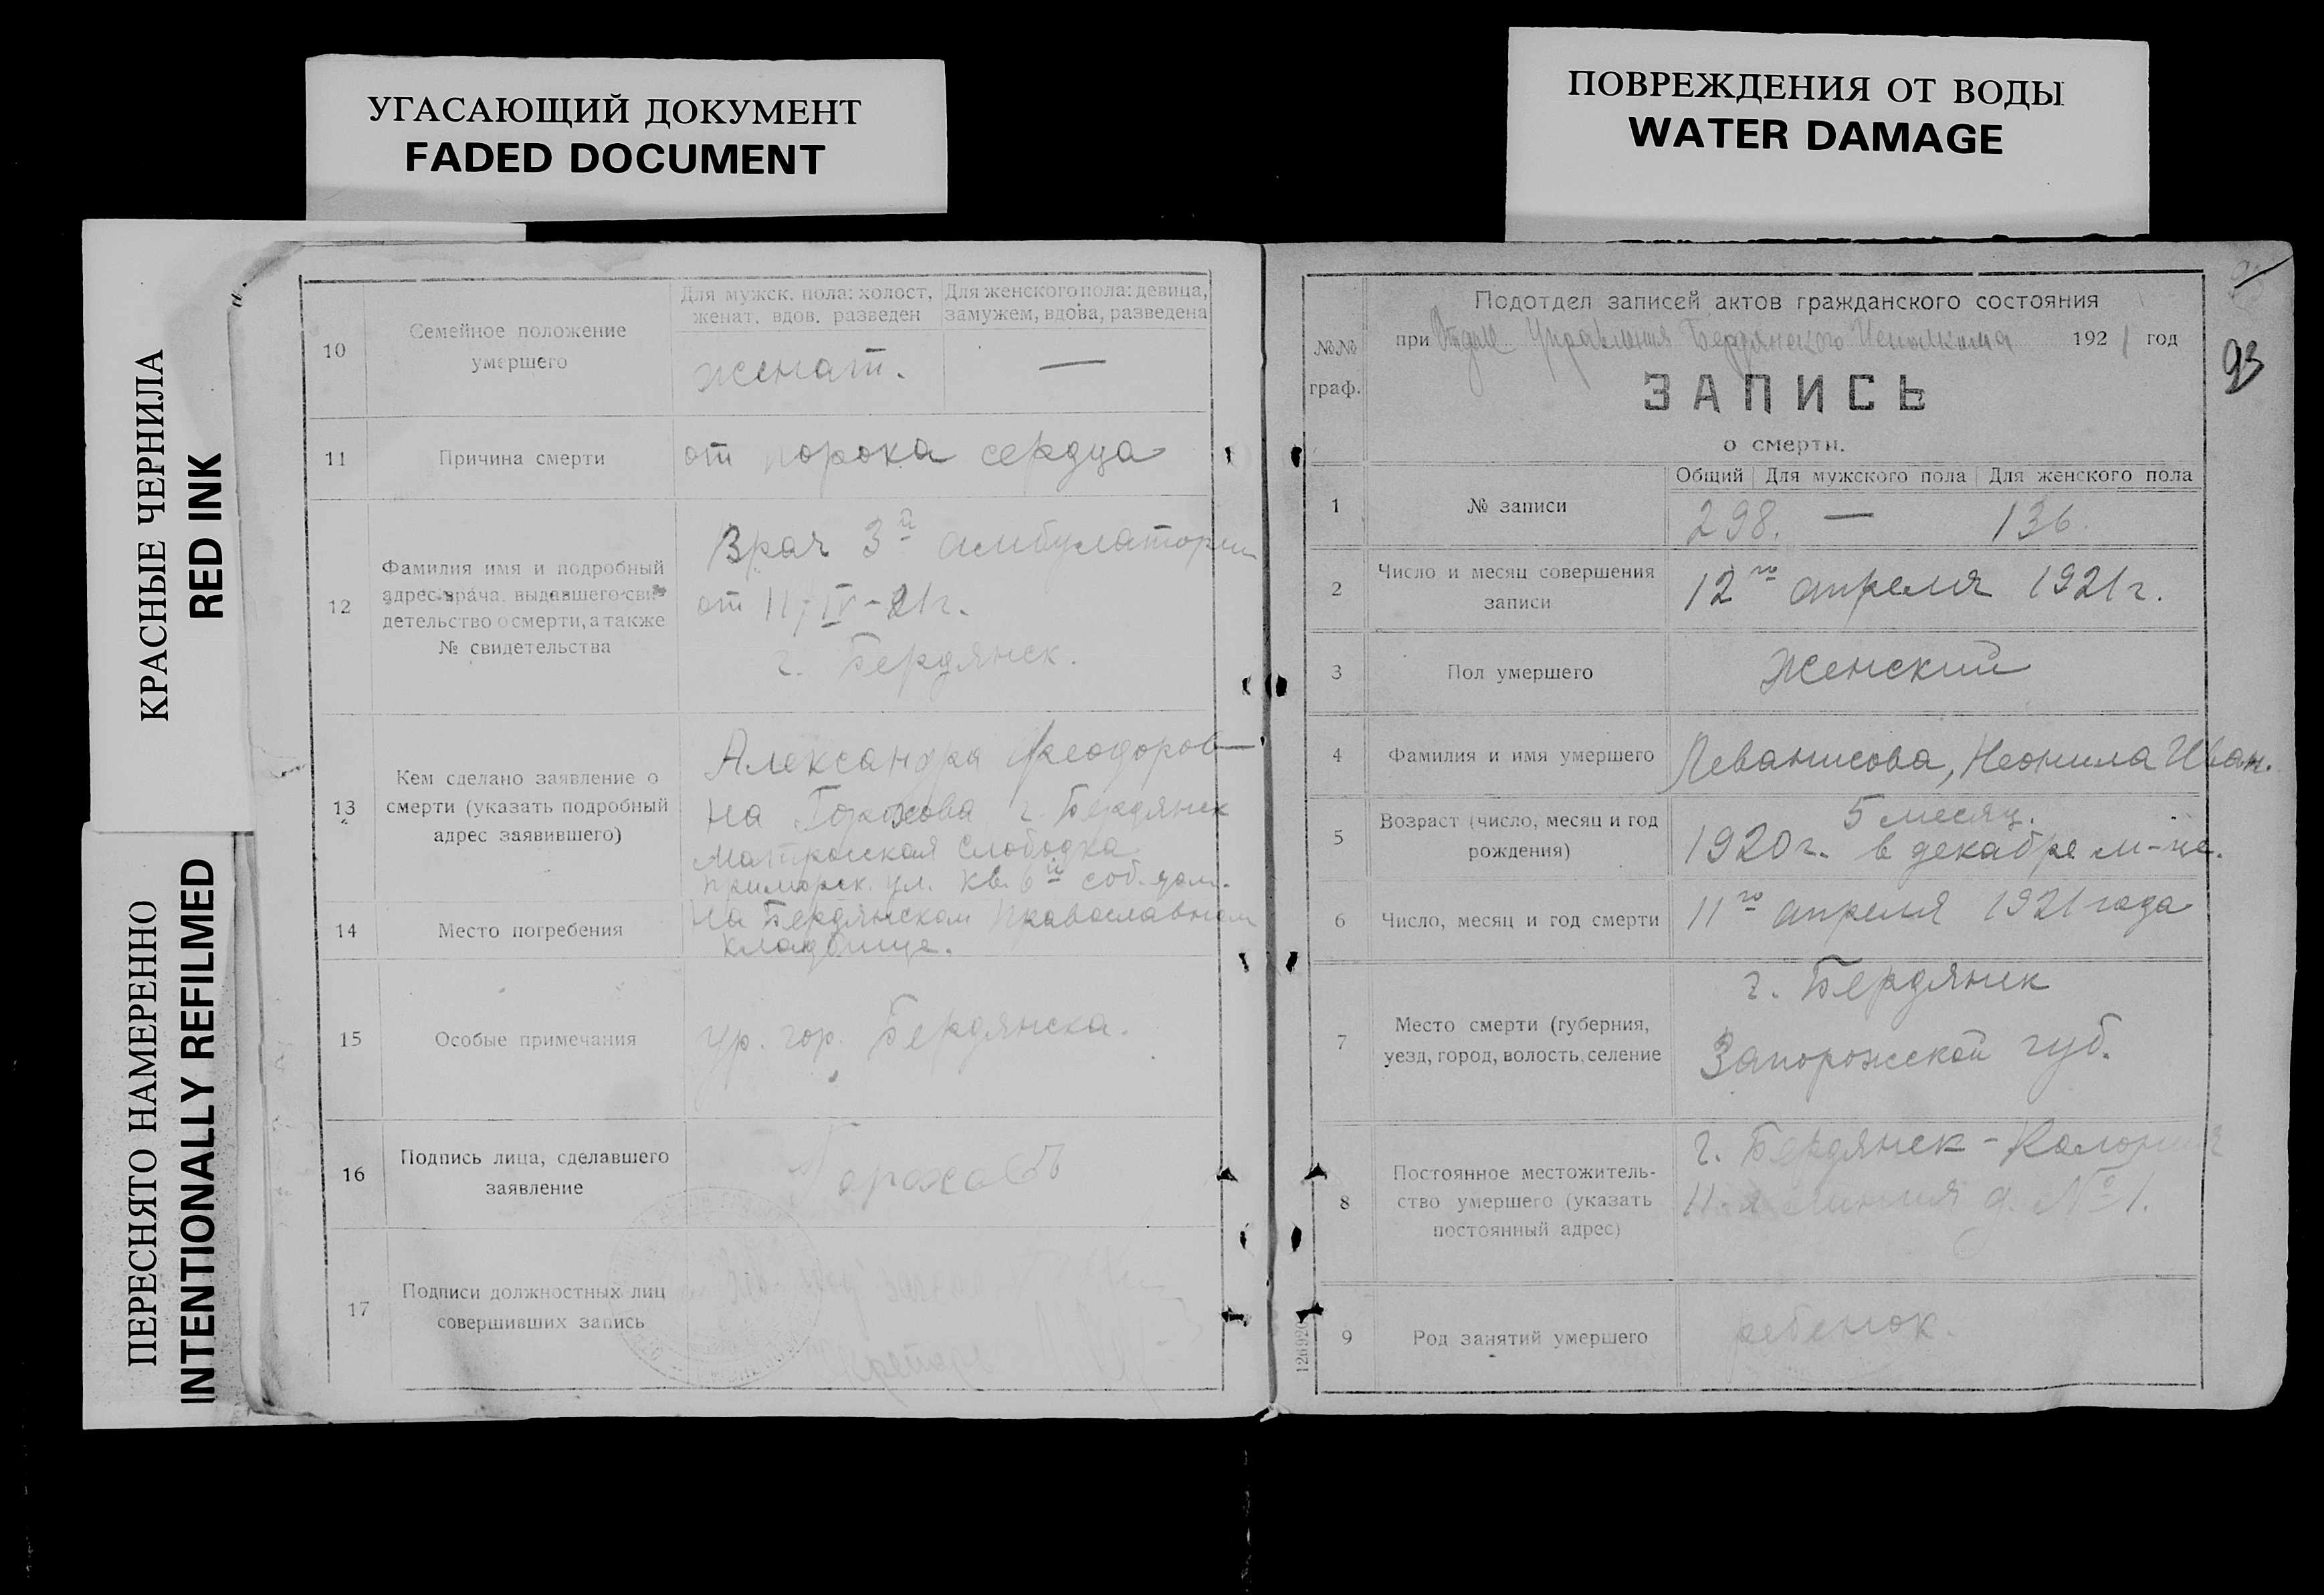 УГАСАЮЩИЙ ДОКУМЕНТ
FADED DOCUMENT
ПОВРЕЖДЕНИЯ ОТ ВОДЫ
WATER DAMAGE
КРАСНЫЕ ЧЕРНИЛА
RED INK
ПЕРЕСНЯТО НАМЕРЕННО
INTENTIONALLY REFILMED
10
Семейное положение
умершего
Для мужск. пола: холост,
женат, вдов, разведен
Для женского пола: девица,
замужем, вдова, разведена
женат.
—
11
Причина смерти
от порока сердца
12
Фамилия имя и подробный
адрес врача, выдавшего сви-
детельство о смерти, а также
№ свидетельства
Врач 3й амбулатории
от 11/IV-21г.
г. Бердянск.
13
Кем сделано заявление о
смерти (указать подробный
адрес заявившего)
Александра Феодоров-
на Горохова г. Бердянск
Матросская Слободка
приморск. ул. кв. 6й соб. дом.
14
Место погребения
На Бердянском православном
кладбище.
15
Особые примечания
ур. гор. Бердянска.
16
Подпись лица, сделавшего
заявление
17
Подписи должностных лиц
совершивших запись
93
№№
граф.
Подотдел записей актов гражданского состояния
при Отделе Управления Бердянского Исполкома 1921 год
ЗАПИСЬ
о смерти.
1
№ записи
Общий Для мужского пола Для женского пола
298. — 136.
2
Число и месяц совершения
записи
12го апреля 1921г.
3
Пол умершего
Женский
4
Фамилия и имя умершего
Леванисова, Неонила Иван.
5
Возраст (число, месяц и год
рождения)
5 месяц.
1920г. в декабре м-це.
6
Число, месяц и год смерти
11го апреля 1921 года
7
Место смерти (губерния,
уезд, город, волость, селение
г. Бердянск
Запорожской губ.
8
Постоянное местожитель-
ство умершего (указать
постоянный адрес)
г. Бердянск - Колония
11-я линия д. № 1.
9
Род занятий умершего
ребенок.